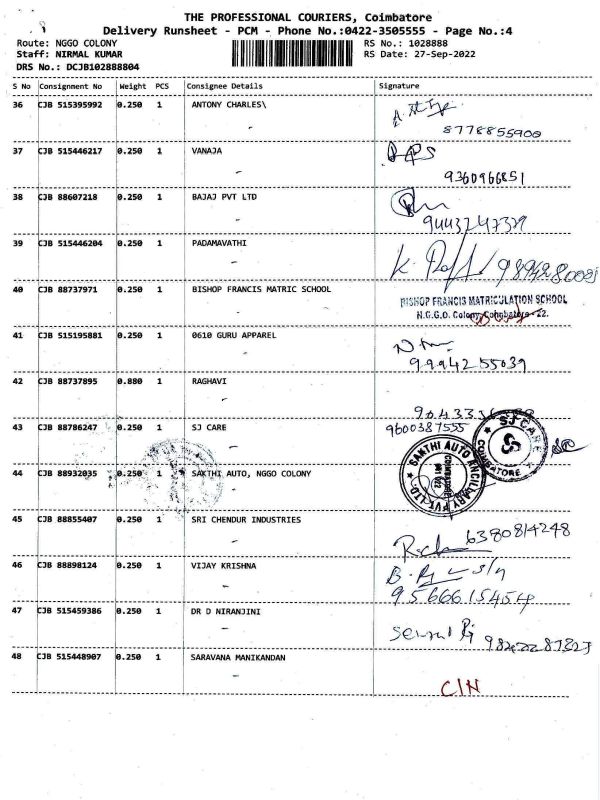 THE PROFESSIONAL COURIERS, Coimbatore
Delivery Runsheet - PCM - Phone No.:0422-3505555 - Page No.:4
Route: NGGO COLONY RS No.: 1028888
Staff: NIRMAL KUMAR RS Date: 27-Sep-2022
DRS No.: DCJB102888804
S No Consignment No Weight PCS Consignee Details Signature
36 CJB 515395992 0.250 1 ANTONY CHARLES\
8778855900
37 CJB 515446217 0.250 1 VANAJA
9360966851
38 CJB 88607218 0.250 1 BAJAJ PVT LTD
9443247329
39 CJB 515446204 0.250 1 PADAMAVATHI
40 CJB 88737971 0.250 1 BISHOP FRANCIS MATRIC SCHOOL BISHOP FRANCIS MATRICULATION SCHOOL
N.G.G.O. Colony, Coimbatore - 22.
41 CJB 515195881 0.250 1 0610 GURU APPAREL
9994255039
42 CJB 88737895 0.880 1 RAGHAVI
43 CJB 88786247 0.250 1 SJ CARE 9600387555
SJ CARE
COIMBATORE
44 CJB 88932035 0.250 1 SAKTHI AUTO, NGGO COLONY
SAKTHI AUTO ANCILLARY PVT. LTD
45 CJB 88855407 0.250 1 SRI CHENDUR INDUSTRIES 6380814248
46 CJB 88898124 0.250 1 VIJAY KRISHNA
9566615454
47 CJB 515459386 0.250 1 DR D NIRANJINI
48 CJB 515448907 0.250 1 SARAVANA MANIKANDAN
C/N